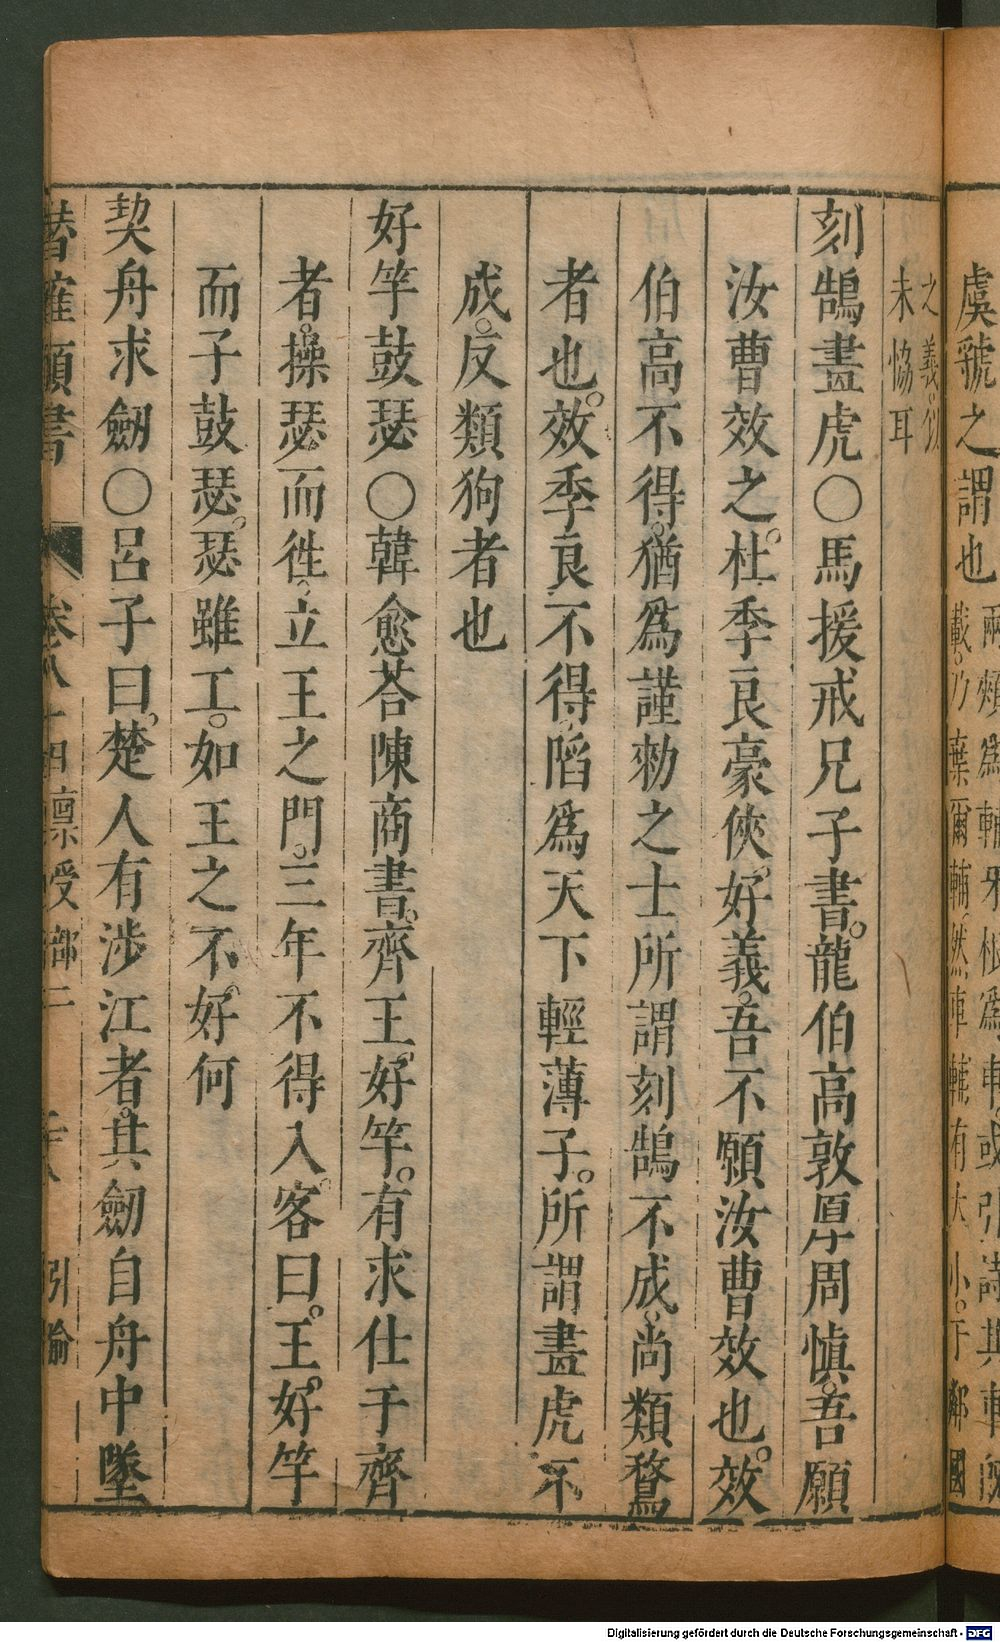 虞虢之謂也
載。乃棄爾輔。然車輔有大小。于鄰國
之義。似
未恊耳
刻鵠畫虎○馬援戒兄子書。龍伯高敦厚周慎。吾願
汝曹效之。杜季良豪俠。好義。吾不願汝曹效也。效
伯高不得。猶爲謹勑之士所謂刻鵠不成。尚類鶩
者也。效季良不得。陷爲天下輕薄子。所謂畫虎不
成。反類狗者也
好竽鼓瑟○韓愈荅陳商書。齊王好竽。有求仕于齊
者。操瑟而徃。立王之門。三年不得入。客曰。王好竽
而子鼓瑟。瑟雖工。如王之不好何
契舟求劒○呂子曰。楚人有涉江者。其劒自舟中墜
卷八十四 禀受部二 引喻
Digitalisierung gefördert durch die Deutsche Forschungsgemeinschaft - DFG